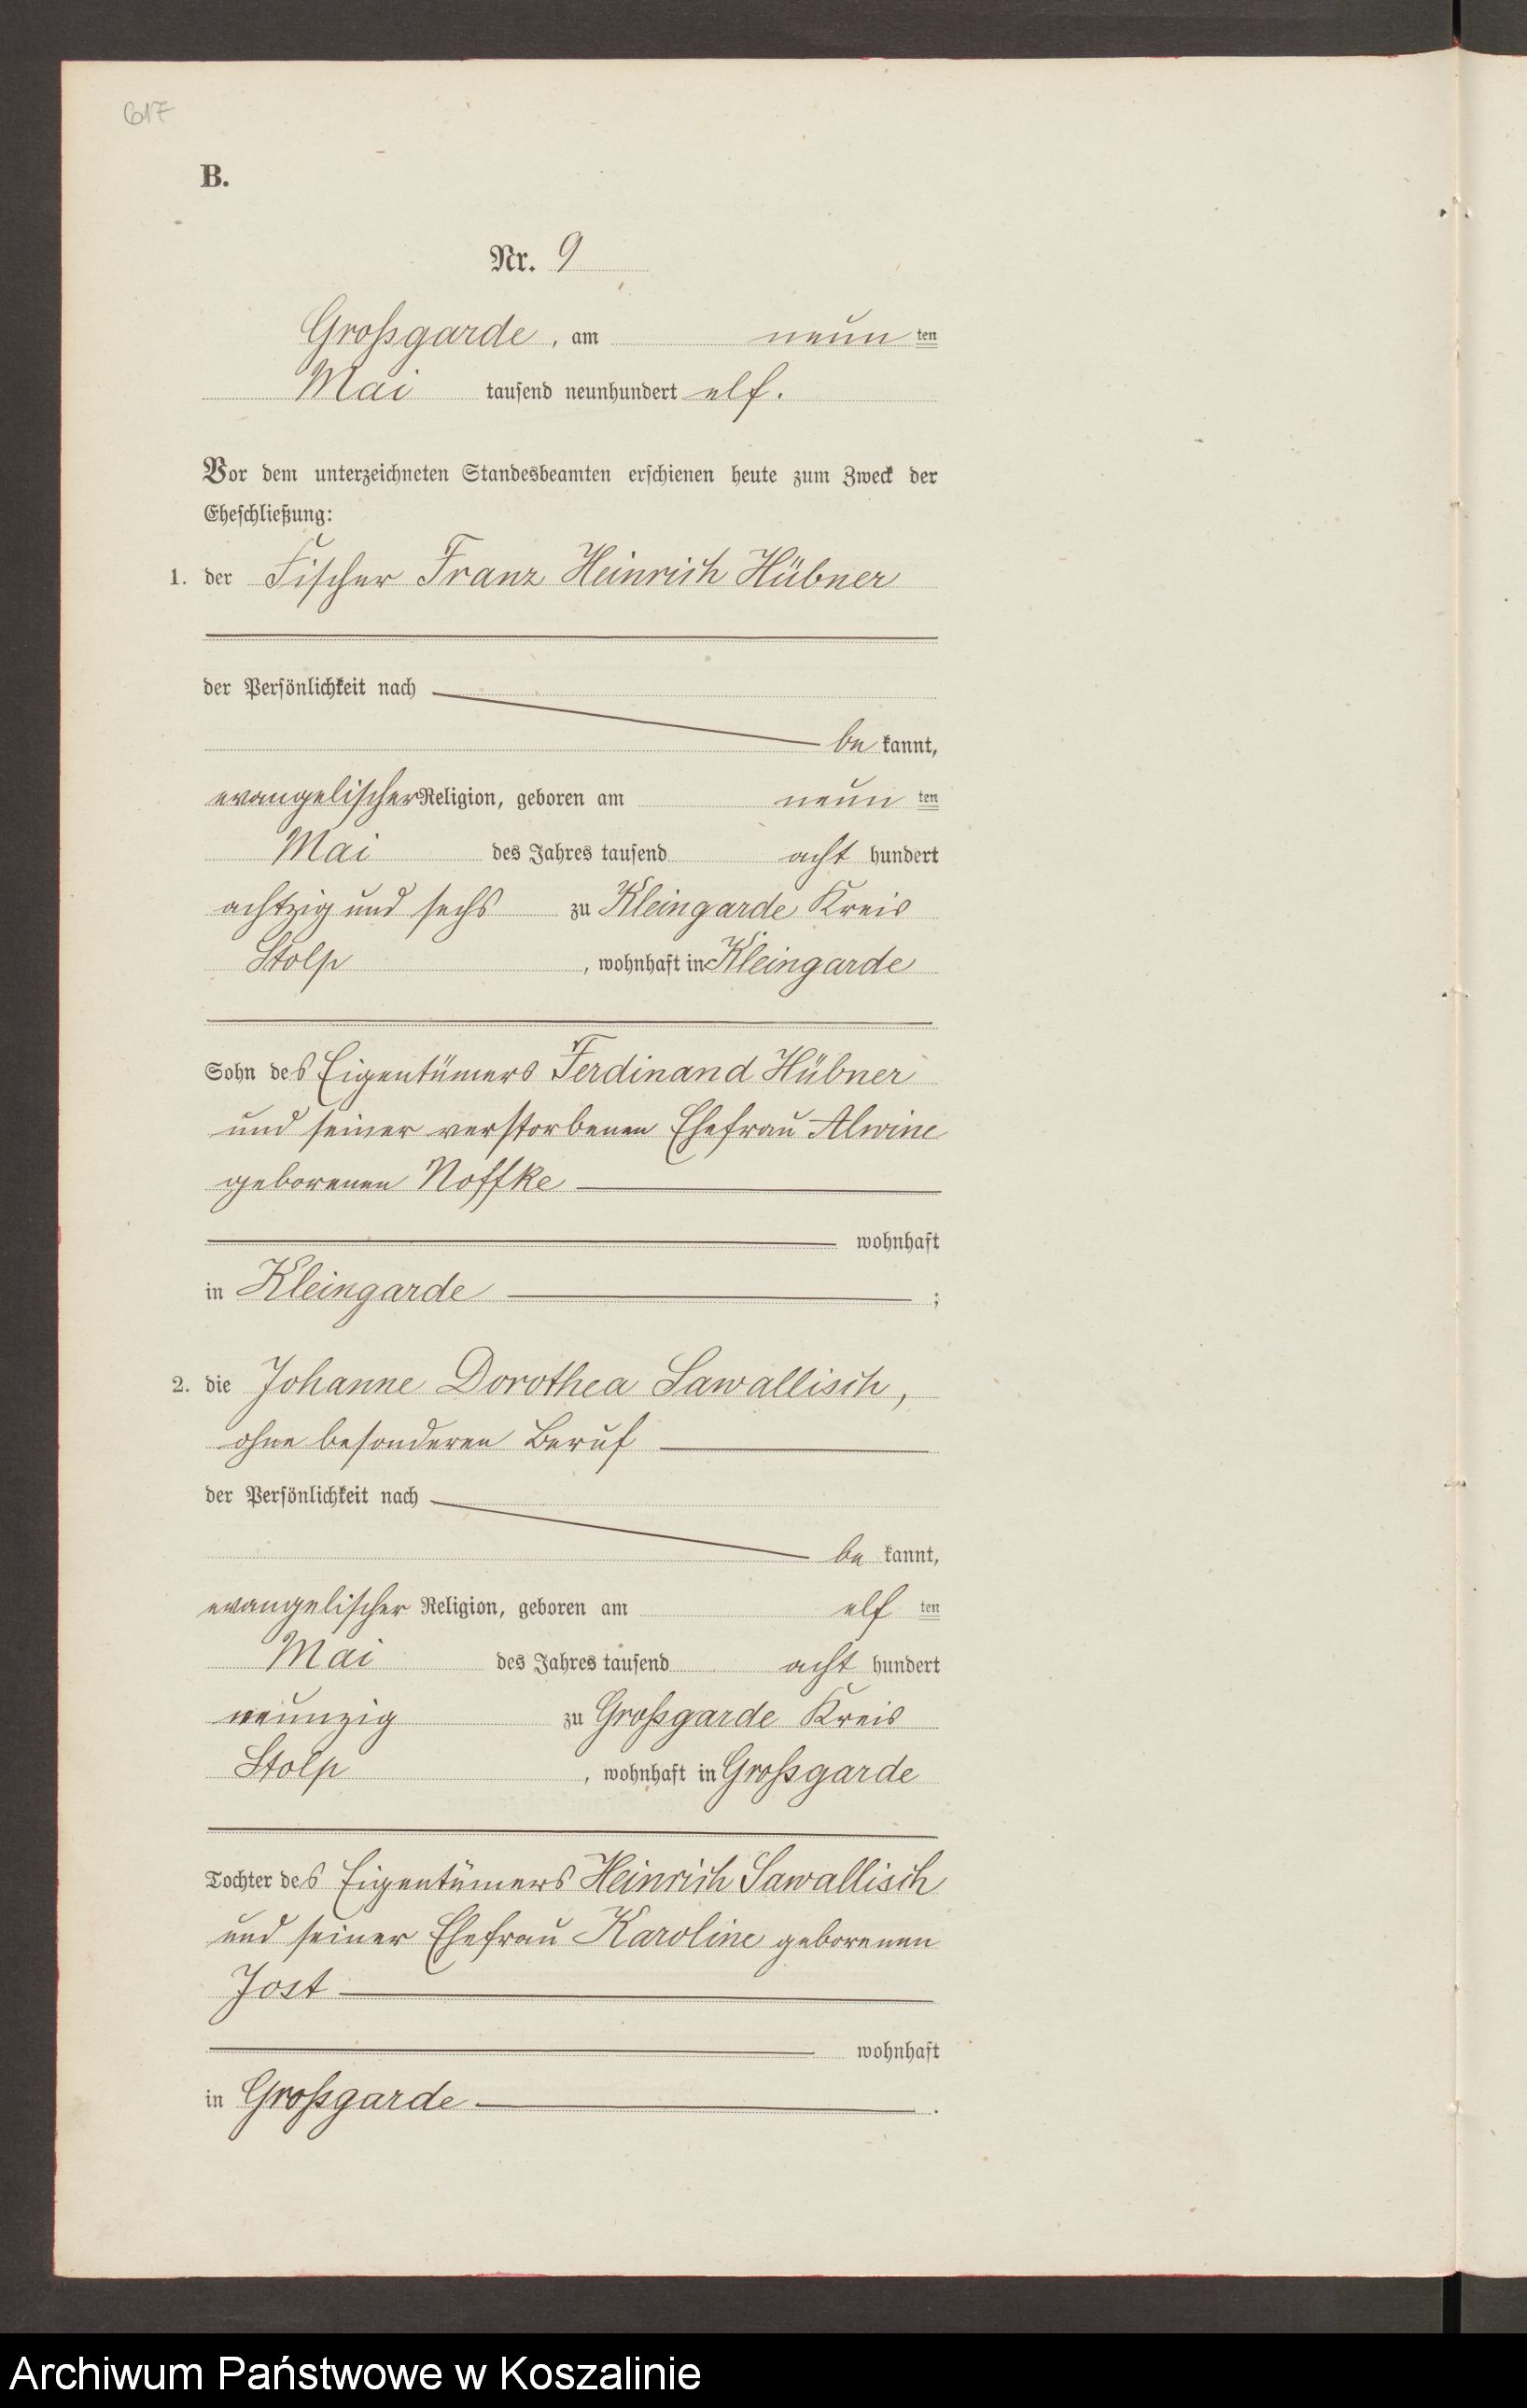 617
B.
Nr. 9
Großgarde, am neun ten
Mai tausend neunhundert elf.
Vor dem unterzeichneten Standesbeamten erschienen heute zum Zweck der
Eheschließung:
1. der Fischer Franz Heinrich Hübner
der Persönlichkeit nach
be kannt,
evangelischer Religion, geboren am neun ten
Mai des Jahres tausend acht hundert
achtzig und sechs zu Kleingarde Kreis
Stolp, wohnhaft in Kleingarde
Sohn des Eigentümers Ferdinand Hübner
und seiner verstorbenen Ehefrau Alwine
geborenen Noffke
wohnhaft
in Kleingarde ;
2. die Johanne Dorothea Sawallisch,
ohne besonderen Beruf
der Persönlichkeit nach
be kannt,
evangelischer Religion, geboren am elf ten
Mai des Jahres tausend acht hundert
neunzig zu Großgarde Kreis
Stolp, wohnhaft in Großgarde
Tochter des Eigentümers Heinrich Sawallisch
und seiner Ehefrau Karoline geborenen
Jost
wohnhaft
in Großgarde .
Archiwum Państwowe w Koszalinie